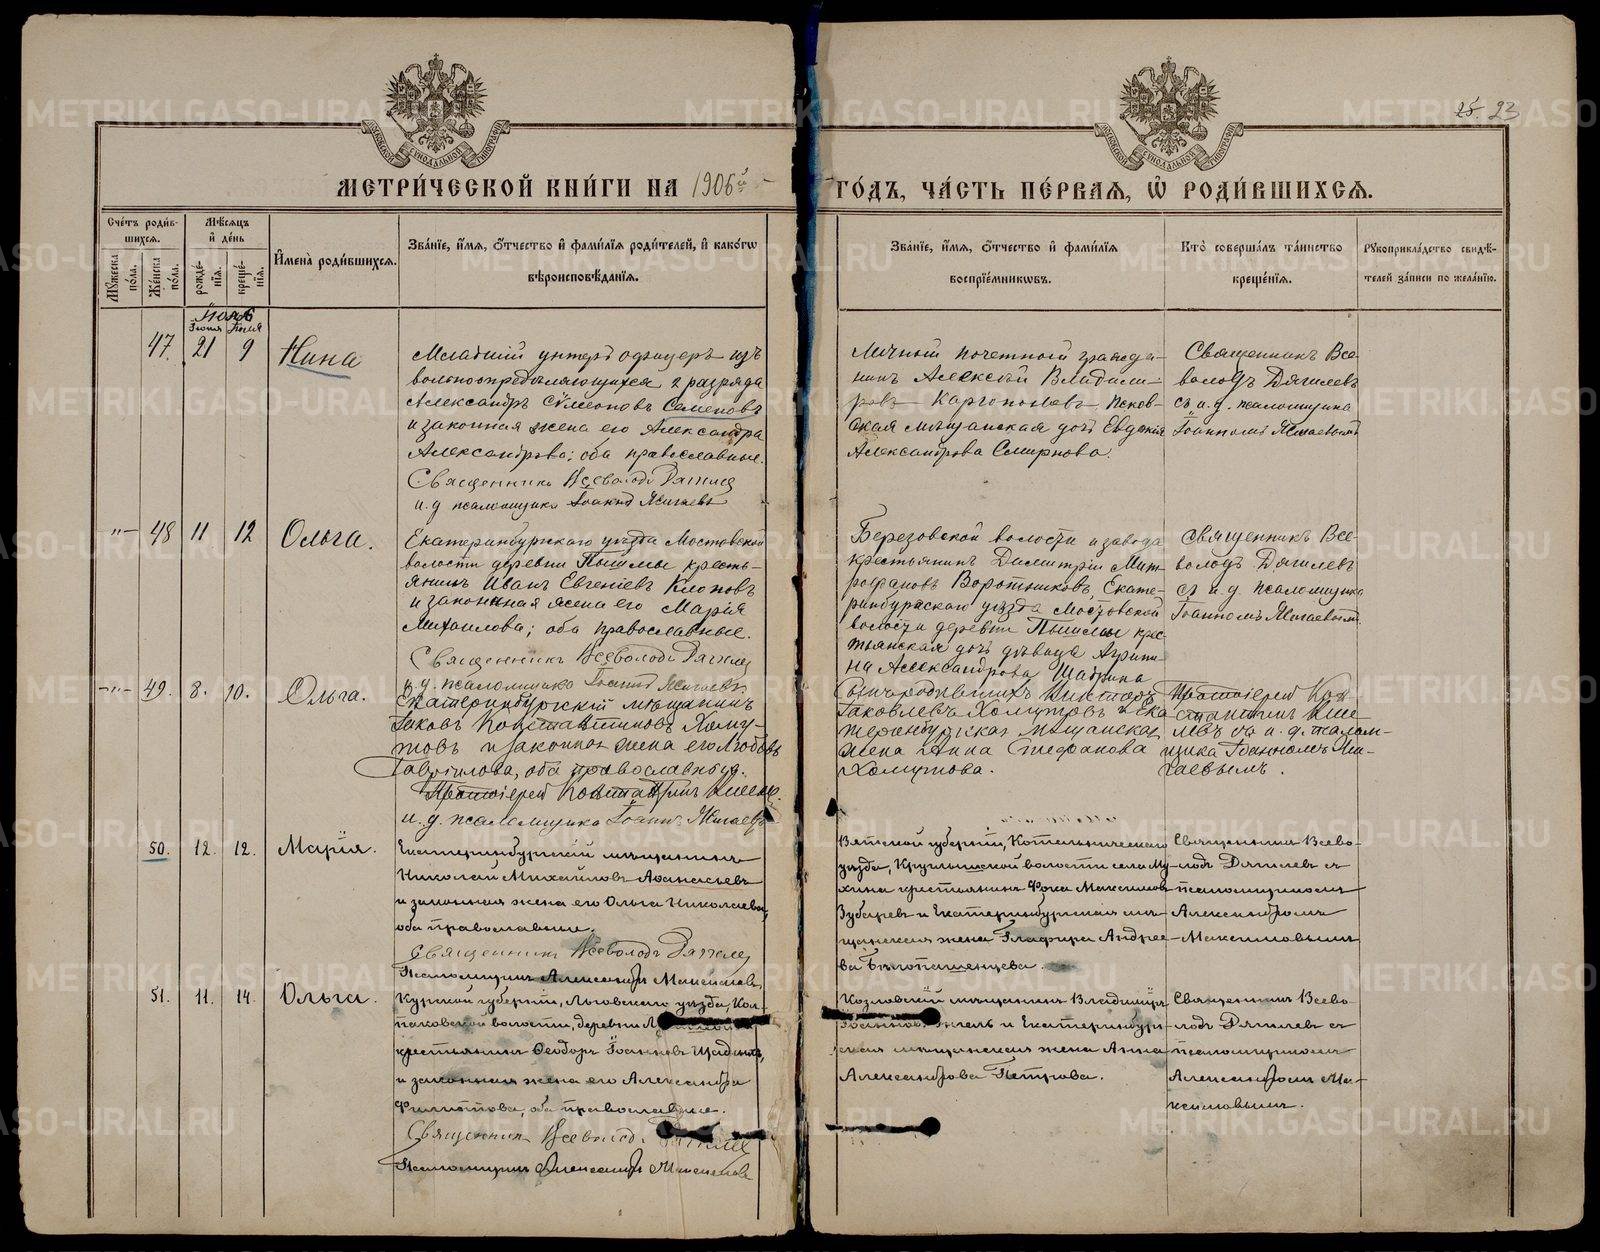 25. 23
МЕТРИ́ЧЕСКОЙ КНИ́ГИ НА 1906й
ГО́ДЪ, ЧА́СТЬ ПЕ́РВАЯ, Ѡ҆ РОДИ́ВШИХСѦ.
Сче́тъ роди́в-
шихсѧ.
Мѣ́сѧцъ
и҆ де́нь
Мꙋ́жеска по́ла.
Же́нска по́ла.
рожде́-
нїѧ.
креще́-
нїѧ.
И҆мена̀ роди́вшихсѧ.
Зва́нїе, и҆́мѧ, ѻ҆́тчество и҆ фами́лїѧ роди́телей, и҆ како́гѡ
вѣроисповѣ́данїѧ.
Зва́нїе, и҆́мѧ, ѻ҆́тчество и҆ фами́лїѧ
воспрїе́мникѡвъ.
Кто̀ соверша́лъ та́инство
креще́нїѧ.
Рꙋкоприкла́дство свидѣ́-
телей за́писи по жела́нїю.
47. 21 9 Нина
Младшій унтеръ офицеръ изъ
вольноопредѣляющихся 2 разряда
Александръ Сѵмеоновъ Семеновъ
и законная жена его Александра
Александрова; оба православные.
Священникъ Всеволодъ Дягилев
и. д. псаломщика Іоаннъ
Личный почетный гражда-
нинъ Алексѣй Владими-
ровъ Каргополовъ, Псков-
ская мѣщанская дочь Евдокія
Александрова Смирнова.
Священникъ Все-
володъ Дягилевъ
съ и. д. псаломщика
Іоанномъ
48 11 12 Ольга.
Екатеринбургскаго уѣзда Мостовской
волости деревни Пышмы кресть-
янинъ Иванъ Евгеніевъ Клоповъ
и законная жена его Марія
Михаилова; оба православные.
Священникъ Всеволодъ Дягилев
и. д. псаломщика Іоаннъ
Березовской волости и завода
крестьянинъ Димитрій Мит-
рофановъ Воротниковъ, Екате-
ринбургскаго уѣзда Мостовской
волости деревни Пышмы крес-
тьянская дочь дѣвица Агрипи-
на Александрова
Священникъ Все-
володъ Дягилевъ
съ и. д. псаломщика
Іоанномъ
49. 8. 10. Ольга.
Екатеринбургскій мѣщанинъ
Іаковъ Константиновъ Хому-
товъ и законная жена его Любовь
Гавріилова, оба православные.
Протоіерей Константинъ
и. д. псаломщика Іоаннъ
Сынъ родившихъ Викторъ
Іаковлевъ Хомутовъ и Ека-
теринбургская мѣщанская
жена Анна Стефанова
Хомутова.
Протоіерей Кон-
стантинъ
съ и. д. псалом-
щика Іоанномъ
50. 12. 12. Марія.
Екатеринбургскій мѣщанинъ
Николай Михайловъ Аѳанасьевъ
и законная жена его Ольга Николаева,
оба православные.
Священникъ Всеволодъ Дягилев
Псаломщикъ Александръ Максимовъ
Вятской губерніи, Котельническаго
уѣзда, волости села Му-
хина крестьянинъ Фока Максимовъ
Зубаревъ и Екатеринбургская мѣ-
щанская жена Глафира Андрее-
ва Бѣлопашенцева.
Священникъ Всево-
лодъ Дягилевъ съ
псаломщикомъ
Александромъ
Максимовымъ
51. 11. 14. Ольга.
Курской губерніи, Льговскаго уѣзда, Кол-
паковской волости, деревни
крестьянинъ Ѳеодоръ Іоанновъ
и законная жена его Александра
Филиппова, оба православные.
Священникъ Всеволодъ
Псаломщикъ Александръ Максимовъ
Козловскій мѣщанинъ Владиміръ
и Екатеринбург-
ская мѣщанская жена Анна
Александрова Петрова.
Священникъ Всево-
лодъ Дягилевъ съ
псаломщикомъ
Александромъ Ма-
ксимовымъ.
METRIKI.GASO-URAL.RU